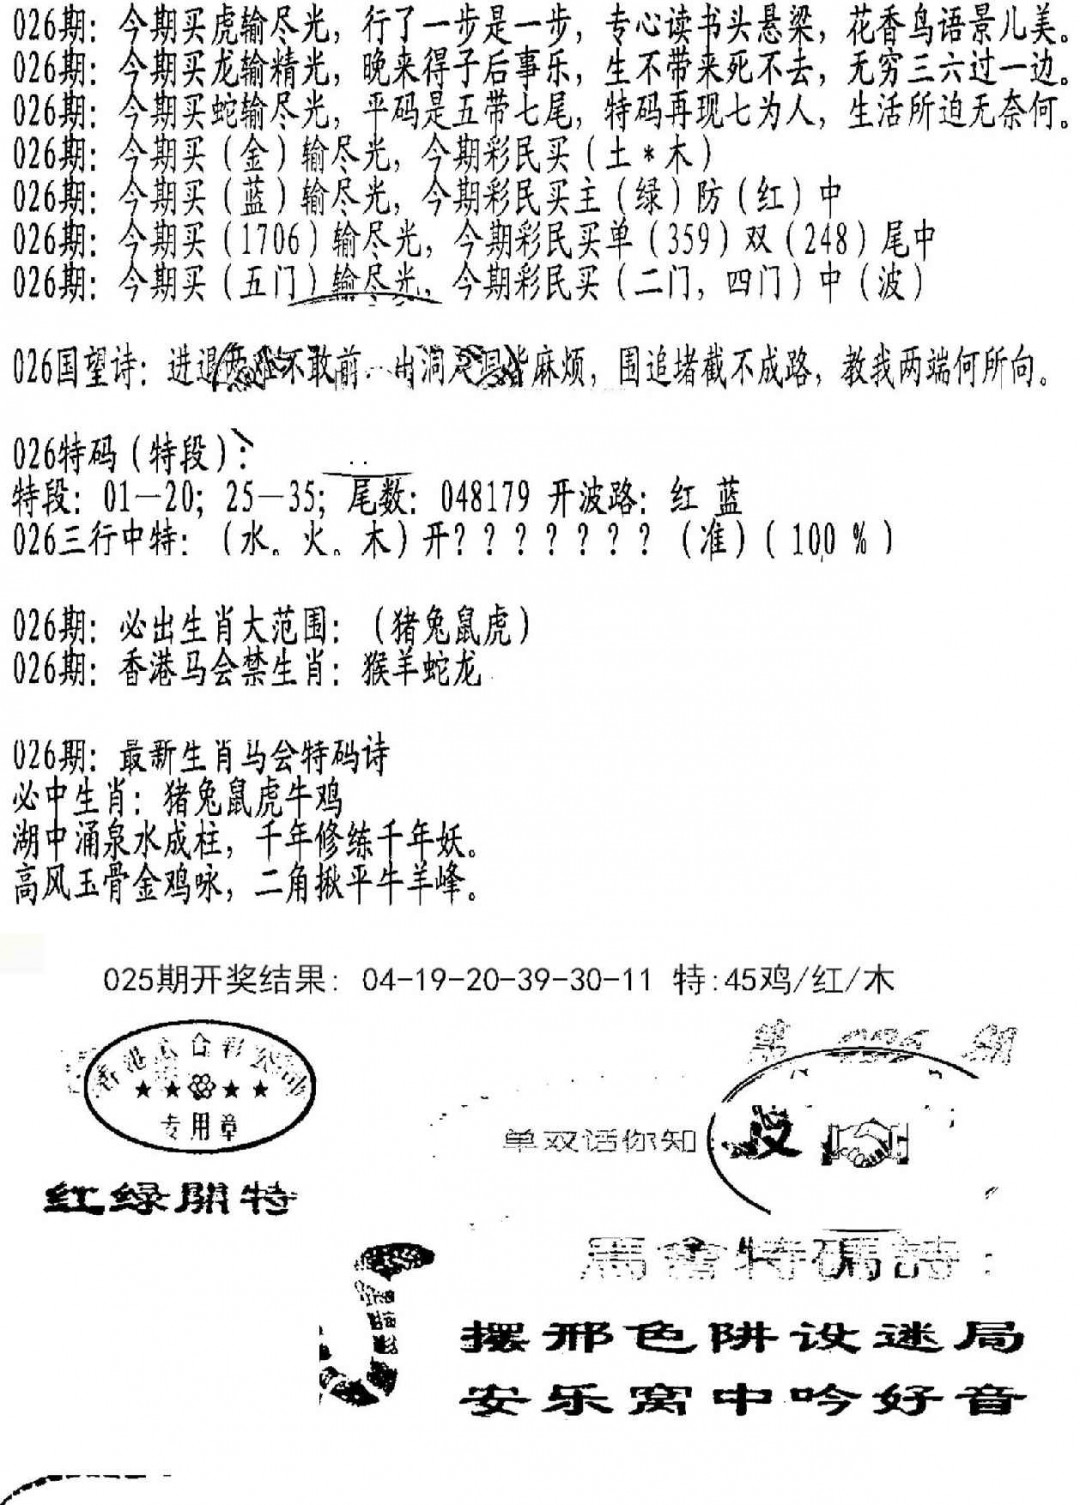 026期: 今期买虎输尽光，行了一步是一步，专心读书头悬梁，花香鸟语景儿美。
026期: 今期买龙输精光，晚来得子后事乐，生不带来死不去，无穷三六过一边。
026期: 今期买蛇输尽光，平码是五带七尾，特码再现七为人，生活所迫无奈何。
026期: 今期买（金）输尽光，今期彩民买（土*木）
026期: 今期买（蓝）输尽光，今期彩民买主（绿）防（红）中
026期: 今期买（1706）输尽光，今期彩民买单（359）双（248）尾中
026期: 今期买（五门）输尽光，今期彩民买（二门，四门）中（波）
026国望诗: 进退两难不敢前 出洞 麻烦，围追堵截不成路，教我两端何所向。
026特码（特段）:
特段: 01—20; 25—35; 尾数: 048179 开波路: 红 蓝
026三行中特: （水。火。木）开? ? ? ? ? ? ? （准）( 100 % )
026期: 必出生肖大范围: （猪兔鼠虎）
026期: 香港马会禁生肖: 猴羊蛇龙
026期: 最新生肖马会特码诗
必中生肖: 猪兔鼠虎牛鸡
湖中涌泉水成柱，千年修练千年妖。
高风玉骨金鸡咏，二角揪平牛羊峰。
025期开奖结果: 04-19-20-39-30-11 特:45鸡/红/木
香港六合彩公司
★★★★
专用章
第 026 期
单双话你知
双
红绿開特
馬會特碼詩:
摆邢色阱设迷局
安乐窝中吟好音